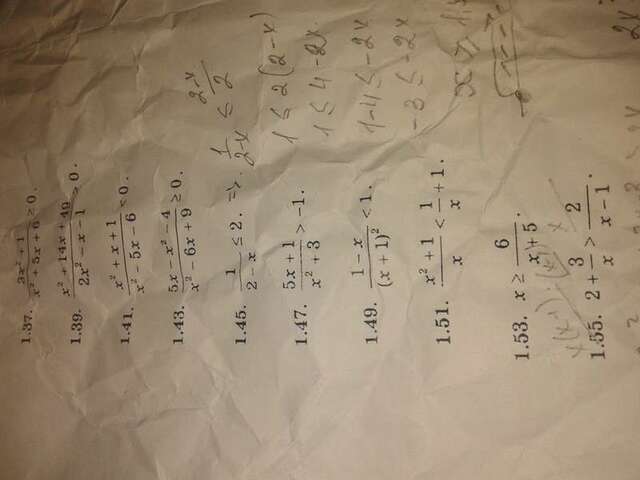 1.37. (3x² + 1)/(x² + 5x + 6) ≥ 0.
1.39. (x² + 14x + 49)/(2x² − x − 1) > 0.
1.41. (x² + x + 1)/(x² − 5x − 6) < 0.
1.43. (5x − x² − 4)/(x² − 6x + 9) ≥ 0.
1.45. 1/(2 − x) ≤ 2. => 1/(2-x) ≤ (2-x)/2
1 ≤ 2(2-x)
1.47. (5x + 1)/(x² + 3) > −1.
1 ≤ 4 -2x
1.49. (1 − x)/(x + 1)² < 1.
1-4 ≤ -2x
-3 ≤ -2x
1.51. (x² + 1)/x < 1/x + 1.
x ≥ 1,
1.53. x ≥ 6/(x + 5).
x(x-1) (x-1) x
1.55. 2 + 3/x > 2/(x − 1).